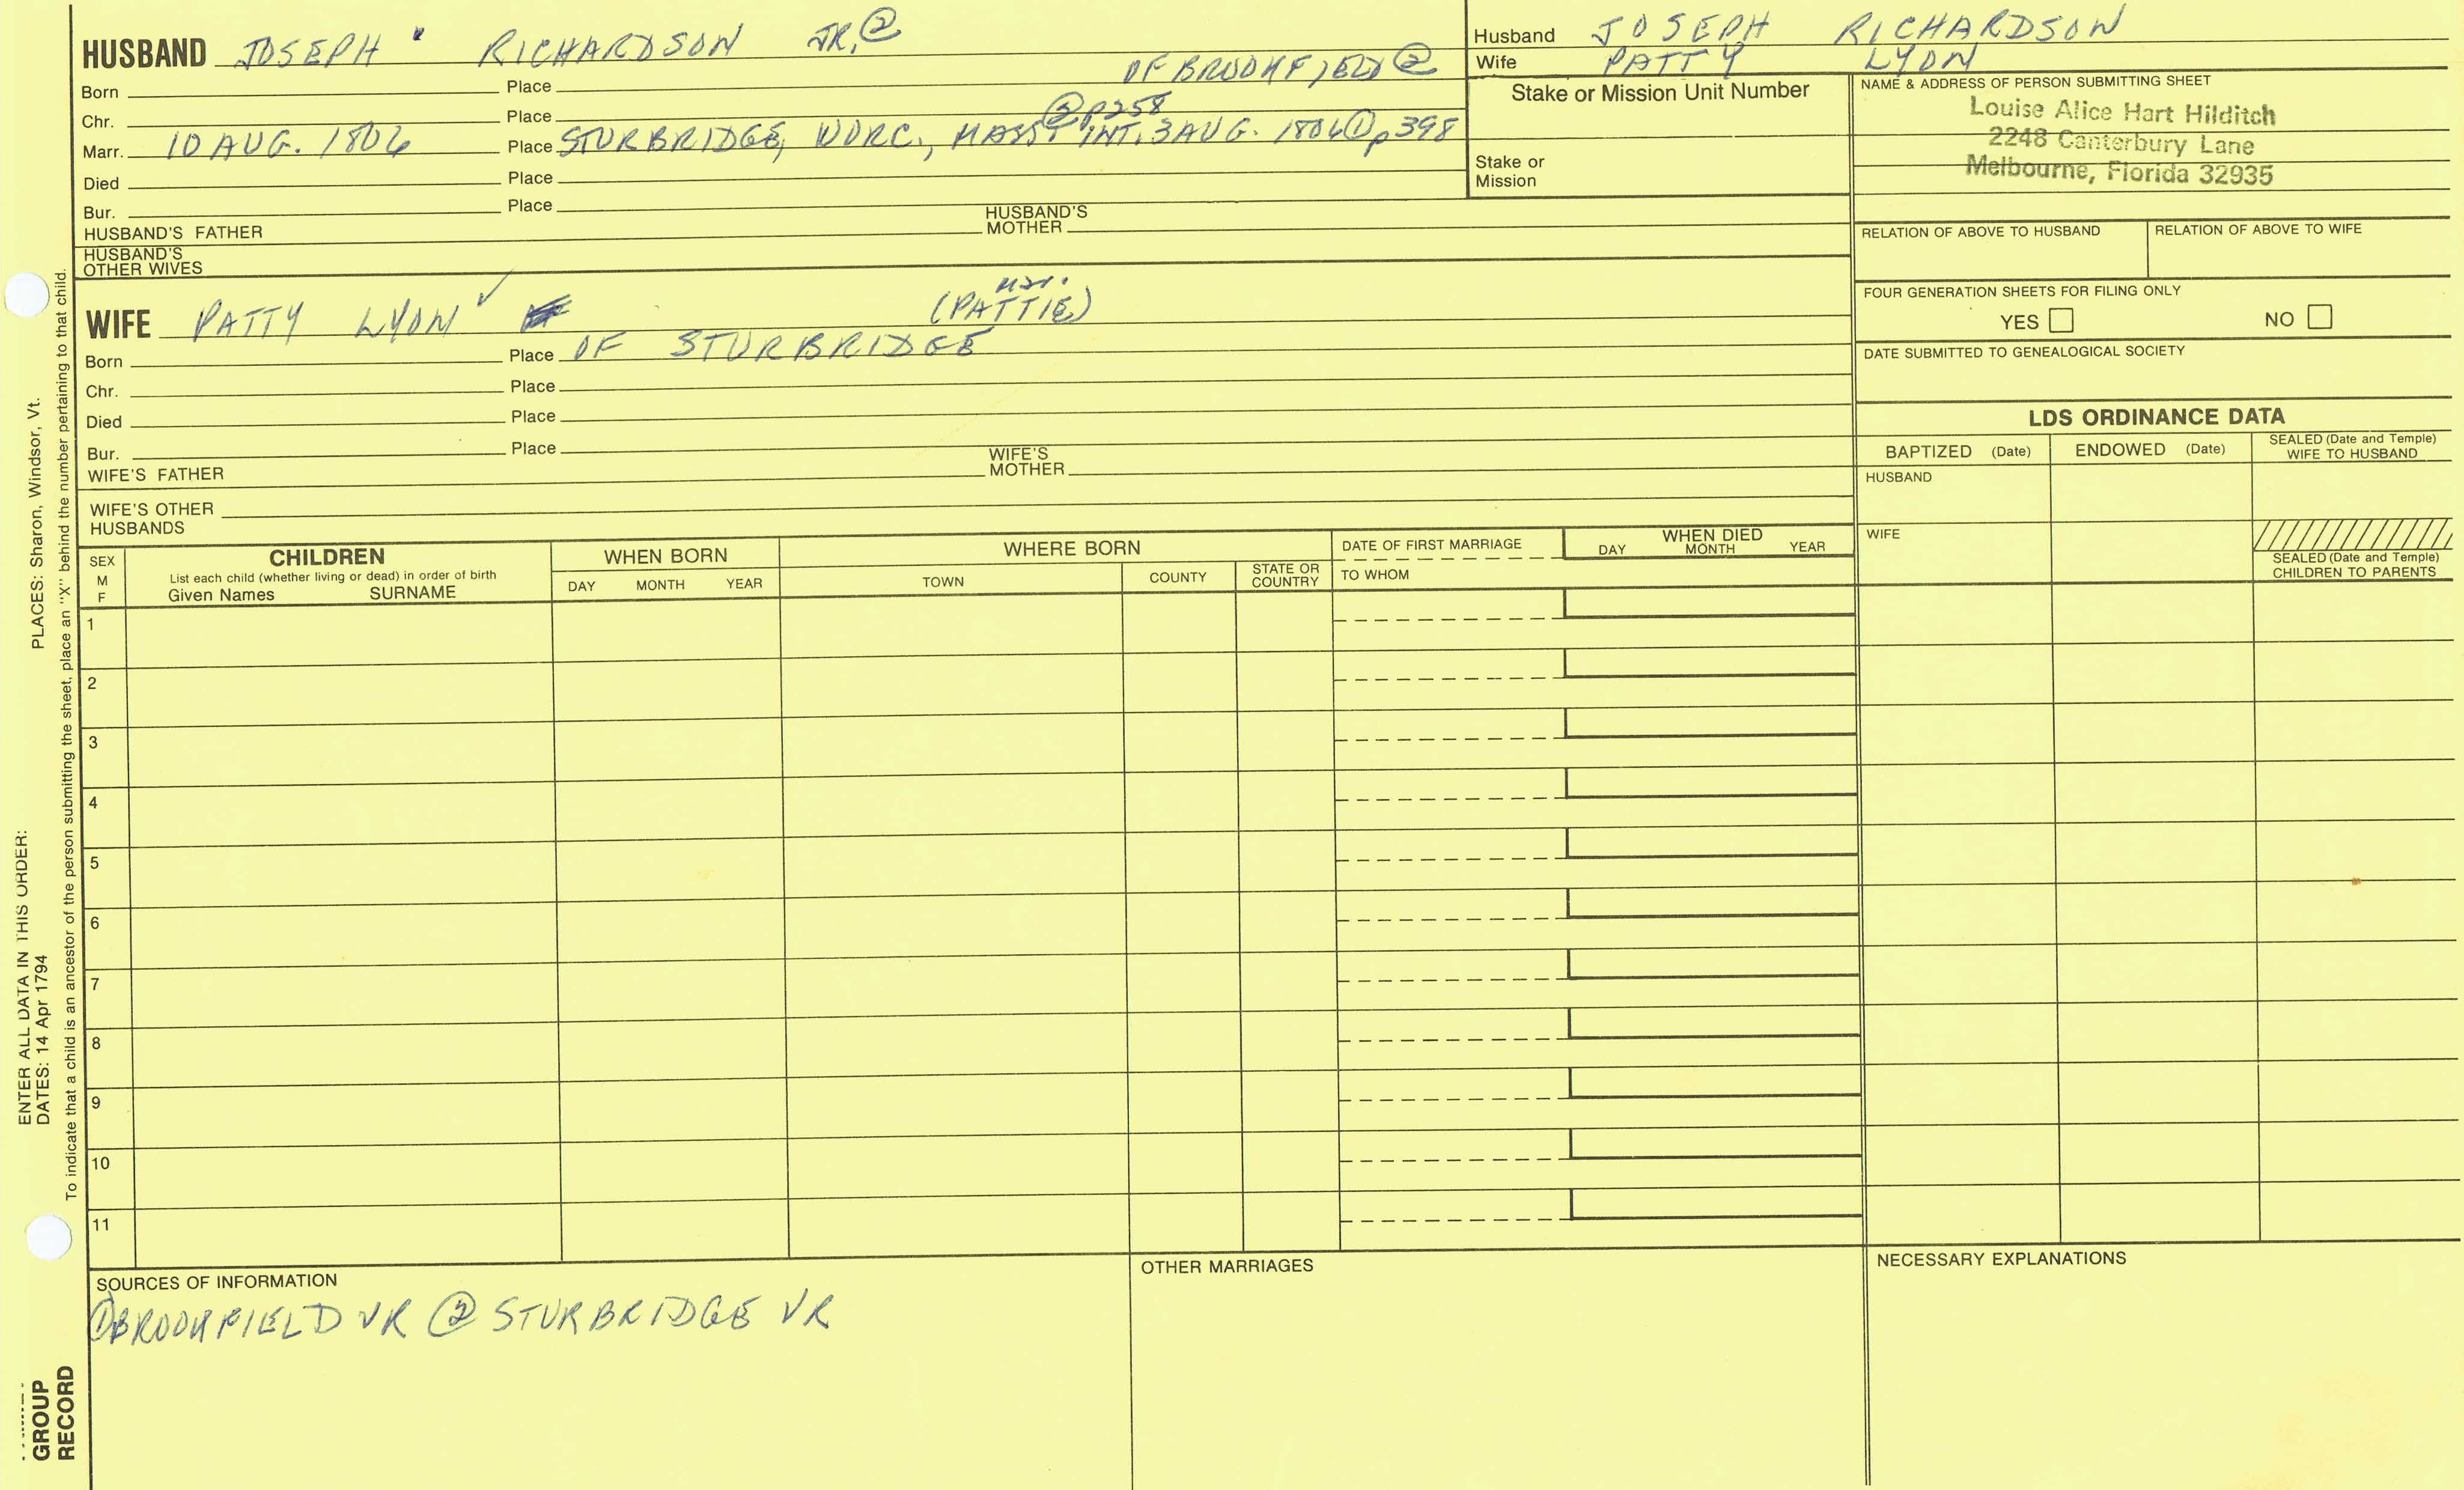 HUSBAND JOSEPH RICHARDSON JR. ②
Born Place OF BROOKFIELD ②
Chr. Place ② p258
Marr. 10 AUG. 1806 Place STURBRIDGE, WORC., MASS INT. 3 AUG. 1806 ① p398
Died Place
Bur. Place
HUSBAND'S FATHER HUSBAND'S MOTHER
HUSBAND'S OTHER WIVES
Husband JOSEPH RICHARDSON
Wife PATTY LYON
Stake or Mission Unit Number
Stake or Mission
NAME & ADDRESS OF PERSON SUBMITTING SHEET
Louise Alice Hart Hilditch
2248 Canterbury Lane
Melbourne, Florida 32935
RELATION OF ABOVE TO HUSBAND RELATION OF ABOVE TO WIFE
FOUR GENERATION SHEETS FOR FILING ONLY
YES NO
DATE SUBMITTED TO GENEALOGICAL SOCIETY
WIFE PATTY LYON (PATTIE)
Born Place OF STURBRIDGE
Chr. Place
Died Place
Bur. Place
WIFE'S FATHER WIFE'S MOTHER
WIFE'S OTHER HUSBANDS
LDS ORDINANCE DATA
BAPTIZED (Date) ENDOWED (Date) SEALED (Date and Temple) WIFE TO HUSBAND
HUSBAND
WIFE
SEALED (Date and Temple) CHILDREN TO PARENTS
SEX M F
CHILDREN
List each child (whether living or dead) in order of birth
Given Names SURNAME
WHEN BORN
DAY MONTH YEAR
WHERE BORN
TOWN COUNTY STATE OR COUNTRY
DATE OF FIRST MARRIAGE
TO WHOM
WHEN DIED
DAY MONTH YEAR
1
2
3
4
5
6
7
8
9
10
11
SOURCES OF INFORMATION
① BROOKFIELD VR ② STURBRIDGE VR
OTHER MARRIAGES
NECESSARY EXPLANATIONS
ENTER ALL DATA IN THIS ORDER:
DATES: 14 Apr 1794 PLACES: Sharon, Windsor, Vt.
To indicate that a child is an ancestor of the person submitting the sheet, place an "X" behind the number pertaining to that child.
GROUP
RECORD